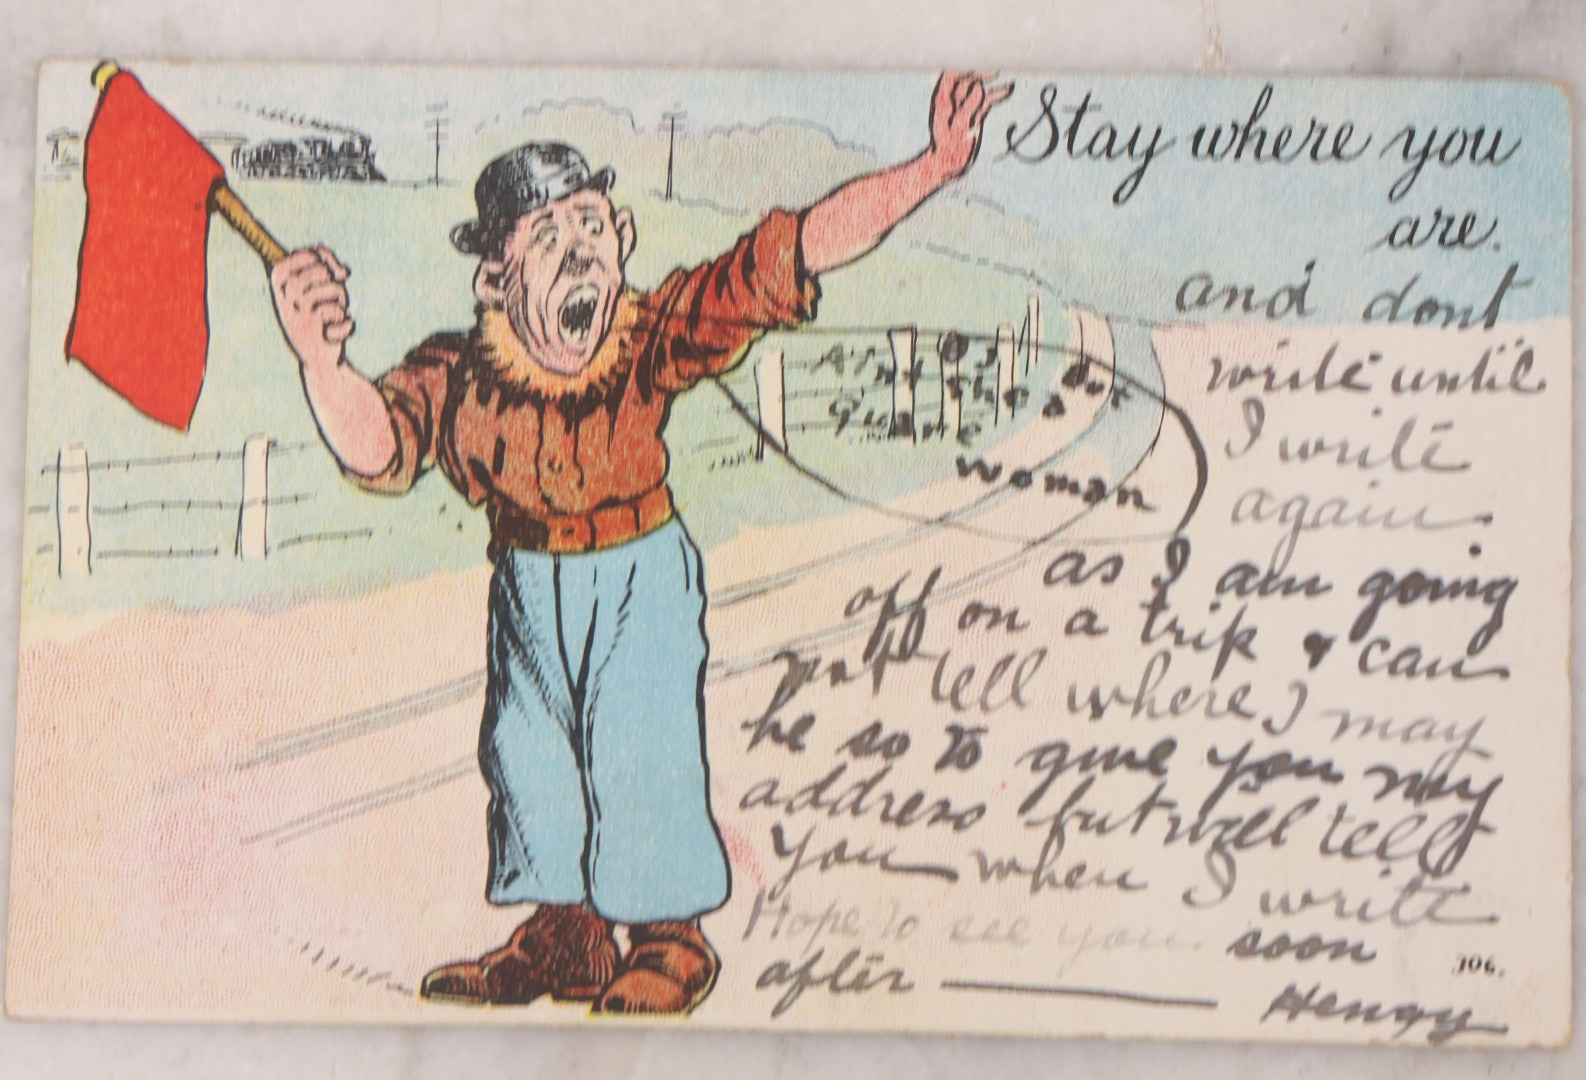 Stay where you
are.
and dont
write until
I write
again
as I am going
off on a trip & can
not tell where I may
be so to give you my
address but will tell
you when I write
Hope to see you soon
after
Henry
306.
woman